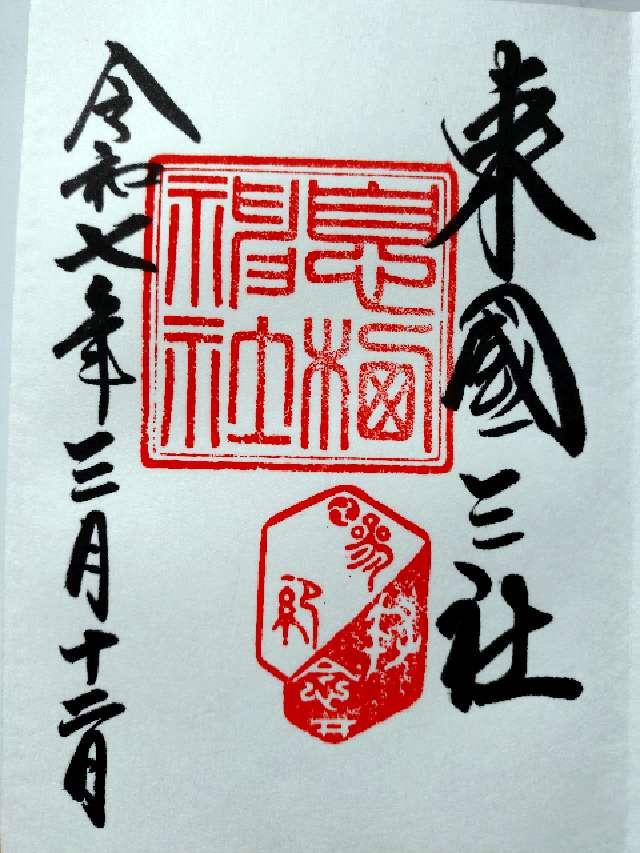 東國三社
息栖
神社
参拝
記念
令和七年三月十二日